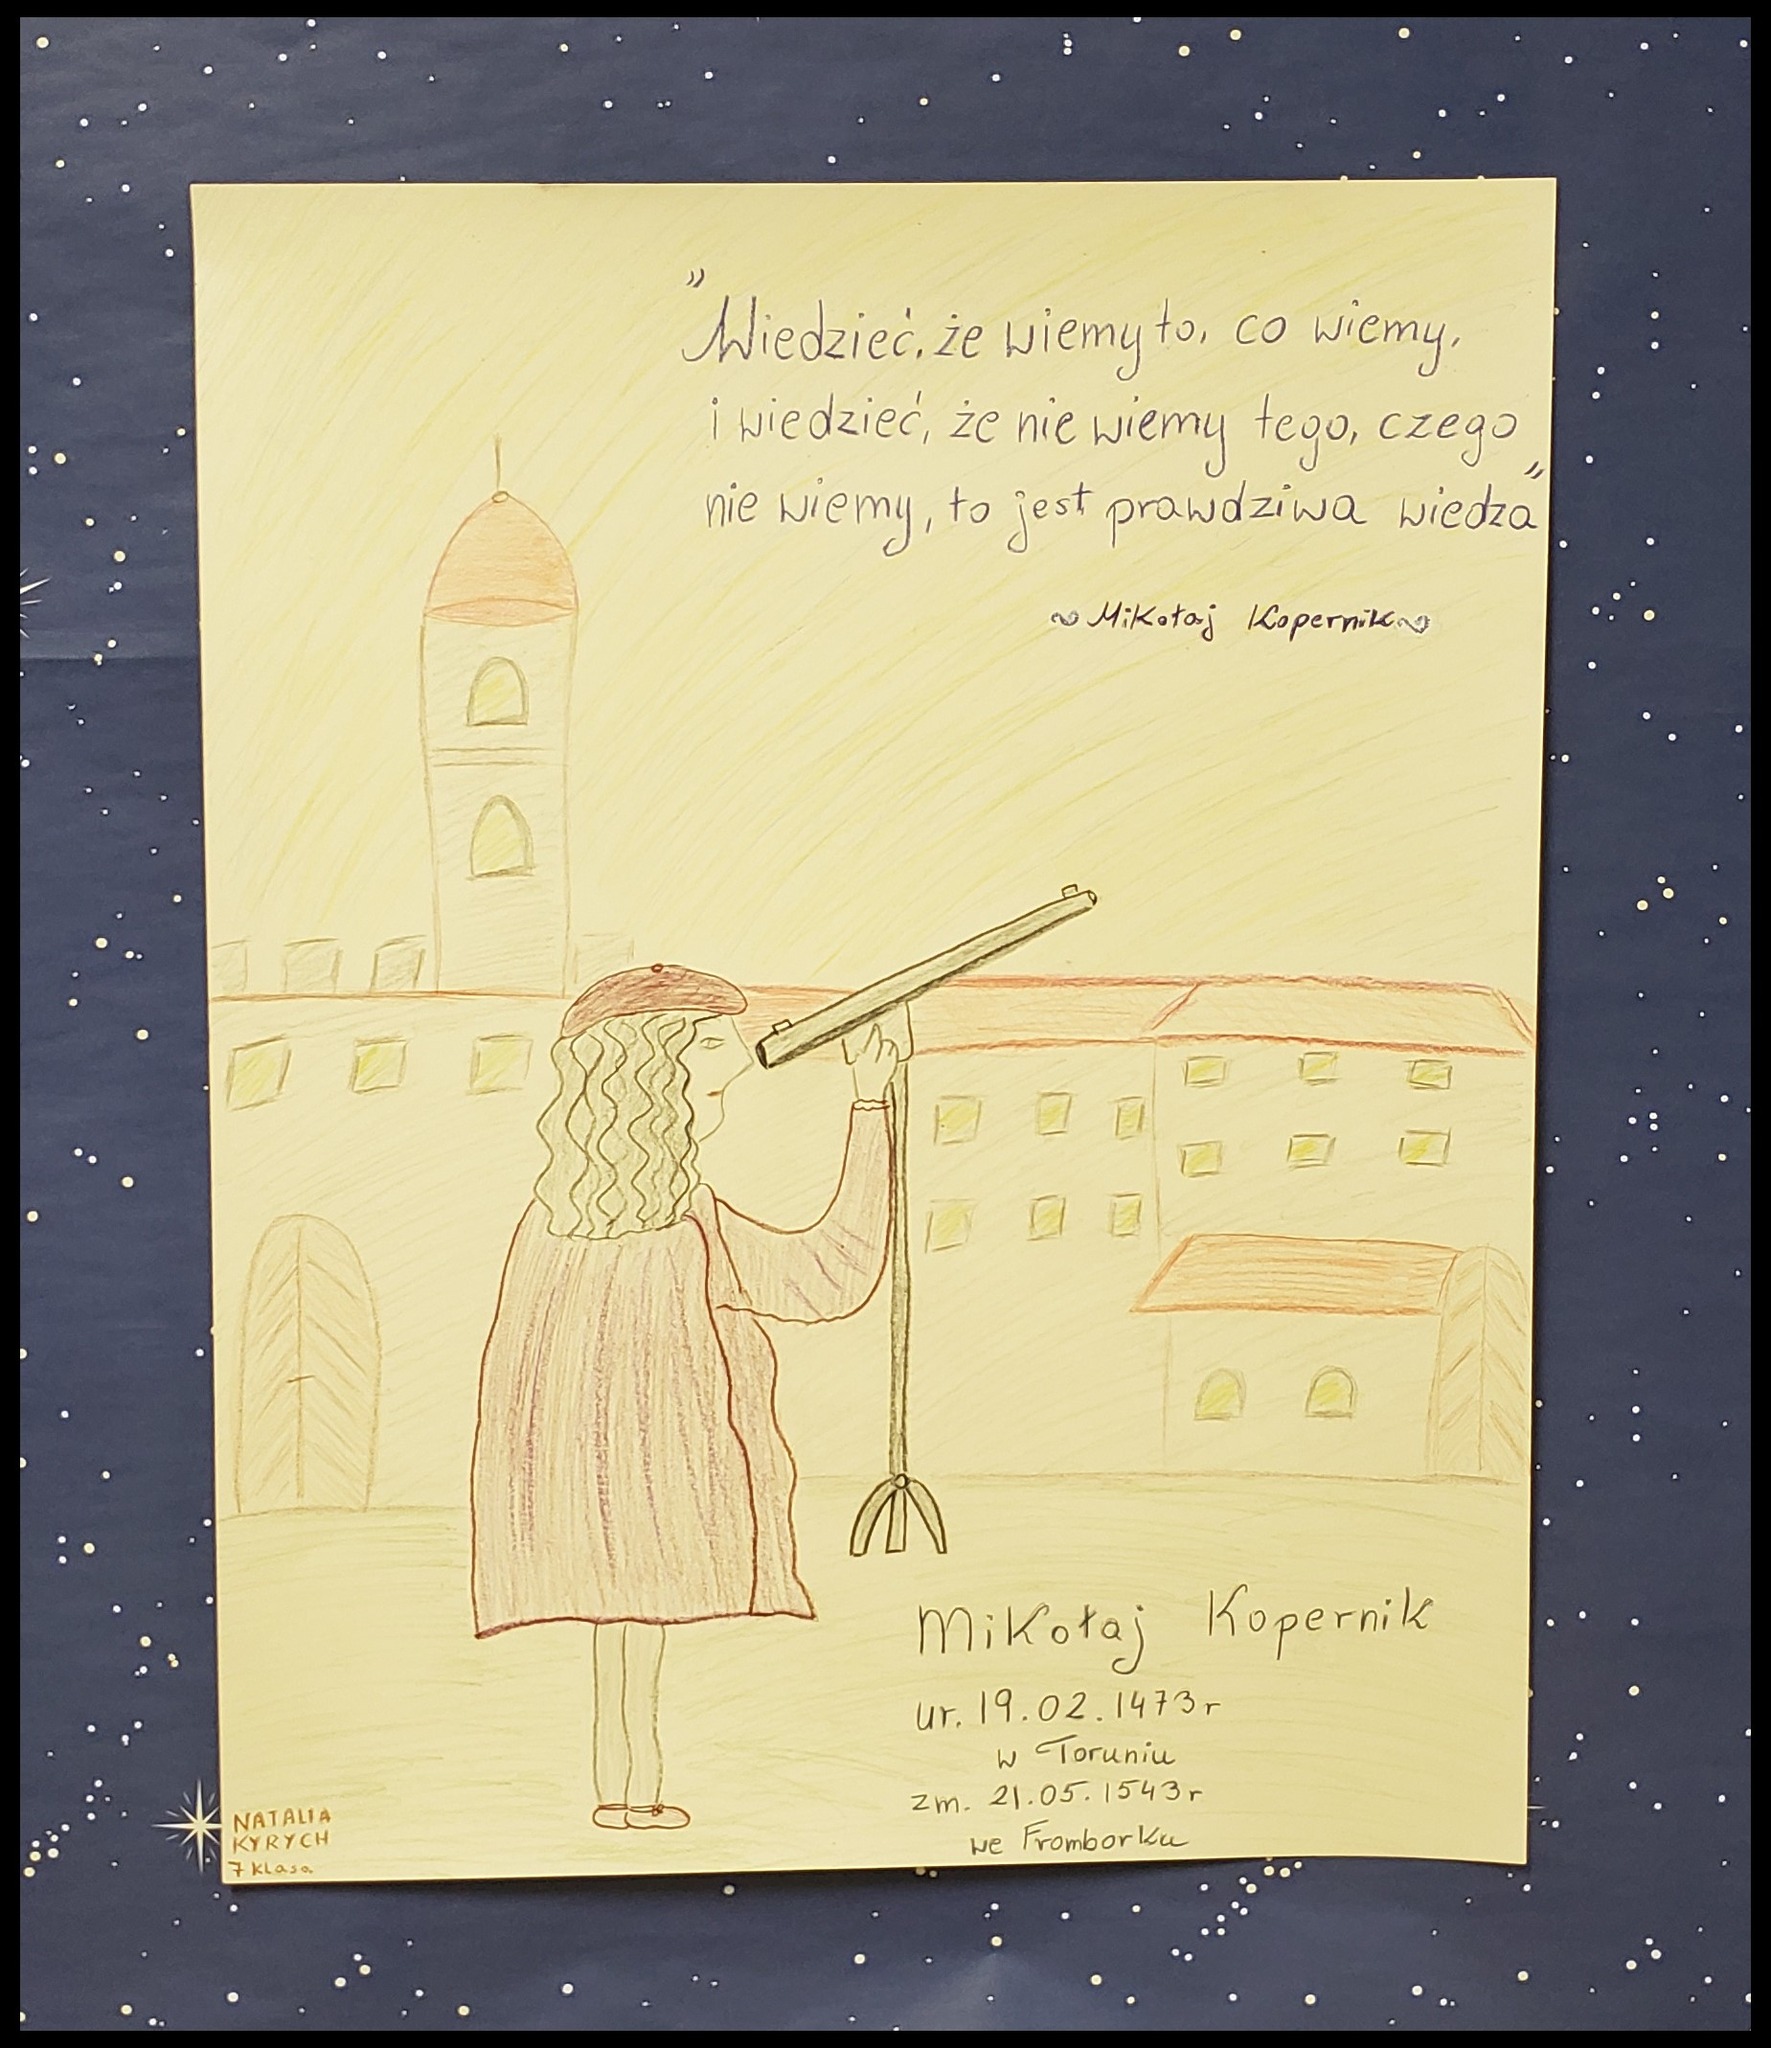 "Wiedzieć, że wiemy to, co wiemy,
i wiedzieć, że nie wiemy tego, czego
nie wiemy, to jest prawdziwa wiedza"
~Mikołaj Kopernik~
Mikołaj Kopernik
ur. 19.02.1473r
w Toruniu
zm. 21.05.1543r
we Fromborku
NATALIA
KYRYCH
7 klasa